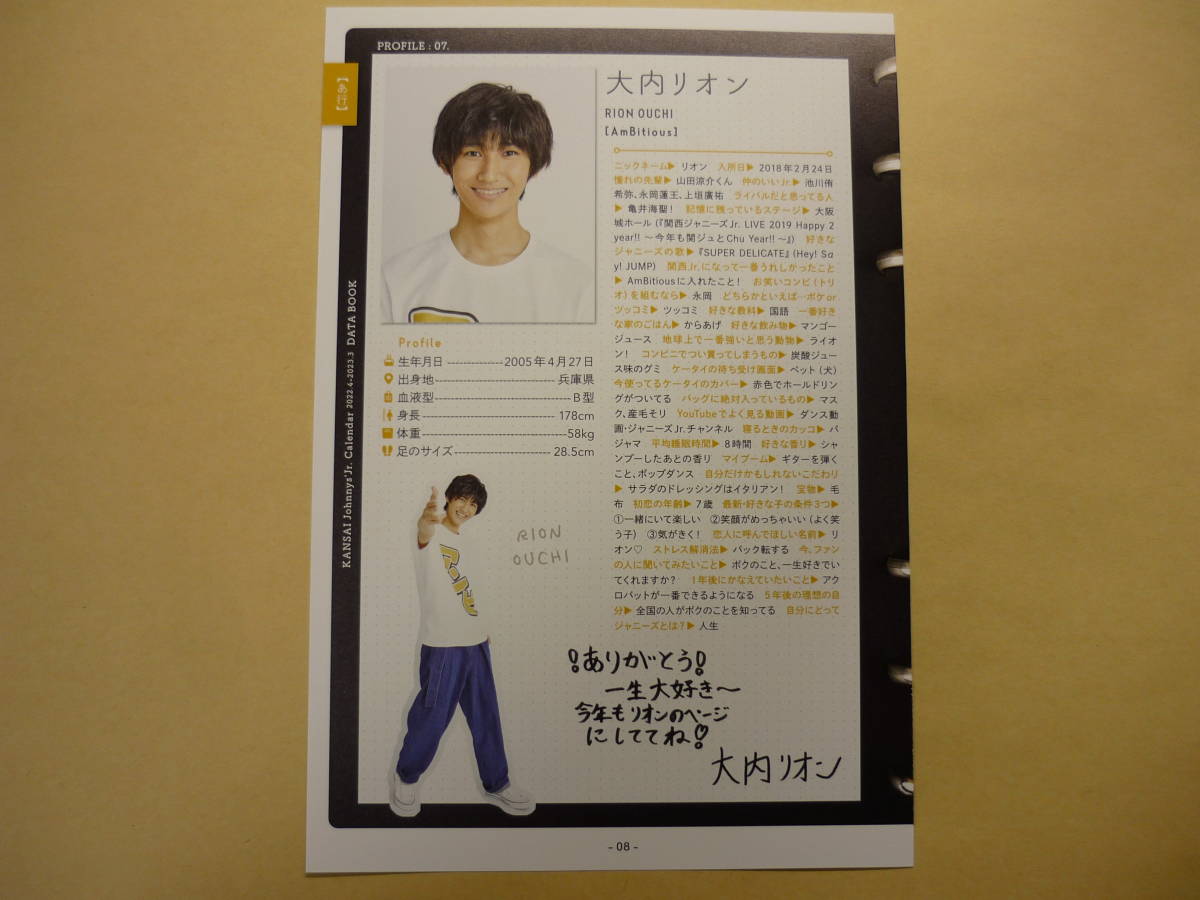 PROFILE : 07.
【あ行】
大内リオン
RION OUCHI
[AmBitious]
ニックネーム▶ リオン　入所日▶ 2018年2月24日
憧れの先輩▶ 山田涼介くん　仲のいいJr.▶ 池川侑
希弥、永岡蓮王、上垣廣祐　ライバルだと思ってる人
▶ 亀井海聖！　記憶に残っているステージ▶ 大阪
城ホール(『関西ジャニーズJr. LIVE 2019 Happy 2
year!! ～今年も関ジュとChu Year!!～』)　好きな
ジャニーズの歌▶『SUPER DELICATE』(Hey! Sa
y! JUMP)　関西Jr.になって一番うれしかったこと
▶ AmBitiousに入れたこと！　お笑いコンビ(トリ
オ)を組むなら▶ 永岡　どちらかといえば…ボケor
ツッコミ▶ ツッコミ　好きな教科▶ 国語　一番好き
な家のごはん▶ からあげ　好きな飲み物▶ マンゴー
ジュース　地球上で一番強いと思う動物▶ ライオ
ン！　コンビニでつい買ってしまうもの▶ 炭酸ジュー
ス味のグミ　ケータイの待ち受け画面▶ ペット(犬)
今使ってるケータイのカバー▶ 赤色でホールドリン
グがついてる　バッグに絶対入っているもの▶ マス
ク、産毛そり　YouTubeでよく見る動画▶ ダンス動
画・ジャニーズJr.チャンネル　寝るときのカッコ▶ パ
ジャマ　平均睡眠時間▶ 8時間　好きな香り▶ シャ
ンプーしたあとの香り　マイブーム▶ ギターを弾く
こと、ポップダンス　自分だけかもしれないこだわり
▶ サラダのドレッシングはイタリアン！　宝物▶ 毛
布　初恋の年齢▶ 7歳　最新・好きな子の条件3つ▶
①一緒にいて楽しい　②笑顔がめっちゃいい(よく笑
う子)　③気がきく！　恋人に呼んでほしい名前▶ リ
オン♡　ストレス解消法▶ バック転する　今、ファン
の人に聞いてみたいこと▶ ボクのこと、一生好きでい
てくれますか？　1年後にかなえていたいこと▶ アク
ロバットが一番できるようになる　5年後の理想の自
分▶ 全国の人がボクのことを知ってる　自分にとって
ジャニーズとは？▶ 人生
Profile
生年月日 ---------------- 2005年4月27日
出身地 ---------------- 兵庫県
血液型 ---------------- B型
身長 ---------------- 178cm
体重 ---------------- 58kg
足のサイズ ---------------- 28.5cm
RION
OUCHI
ありがとう!
一生大好き～
今年もリオンのページ
にしててね!
大内リオン
KANSAI Johnnys'Jr. Calendar 2022.4-2023.3 DATA BOOK
- 08 -